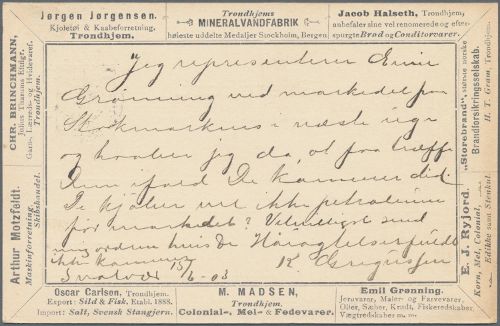 Jørgen Jørgensen.
Kjoletøi & Kaabeforretning.
Trondhjem.
Trondhjems
MINERALVANDFABRIK
høieste uddelte Medaljer Stockholm, Bergen
Jacob Halseth, Trondhjem,
anbefaler sine vel renomerede og efter-
spurgte Brød og Conditorvarer.
CHR. BRINCHMANN,
Julius Thaulows Eftflgr.
Garn-, Lærreds- og Hvidevaref.
Trondhjem.
Arthur Motzfeldt.
Maskinforretning.
Skibshandel.
"Storebrand", største norske
Brandforsikringsselskab.
H. T. Gram, Trondhjem.
E. J. Ryjord.
Korn, Mel, Colonial.
Edikke samt Stenkul.
Jeg repræsenterer Emil
Grønning ved markedet paa
Stokmarknes i næste uge
og haaber jeg da, at faa træffe
Dem ifald De kommer did.
De kjøber vel ikke petroleum
før markedet? Velvilligst send
mig ordren hvis De
ikke kommer Høiagtelsesfuldt
Svolvær 15/6-03 K Gregussen
Oscar Carlsen, Trondhjem.
Export: Sild & Fisk. Etabl. 1888.
Import: Salt, Svensk Stangjern.
M. MADSEN,
Trondhjem.
Colonial-, Mel- & Fødevarer.
Emil Grønning.
Jernvarer, Maler- og Farvevarer,
Olier, Sæber, Krudt, Fiskeredskaber,
Vægtredskaber m. m.